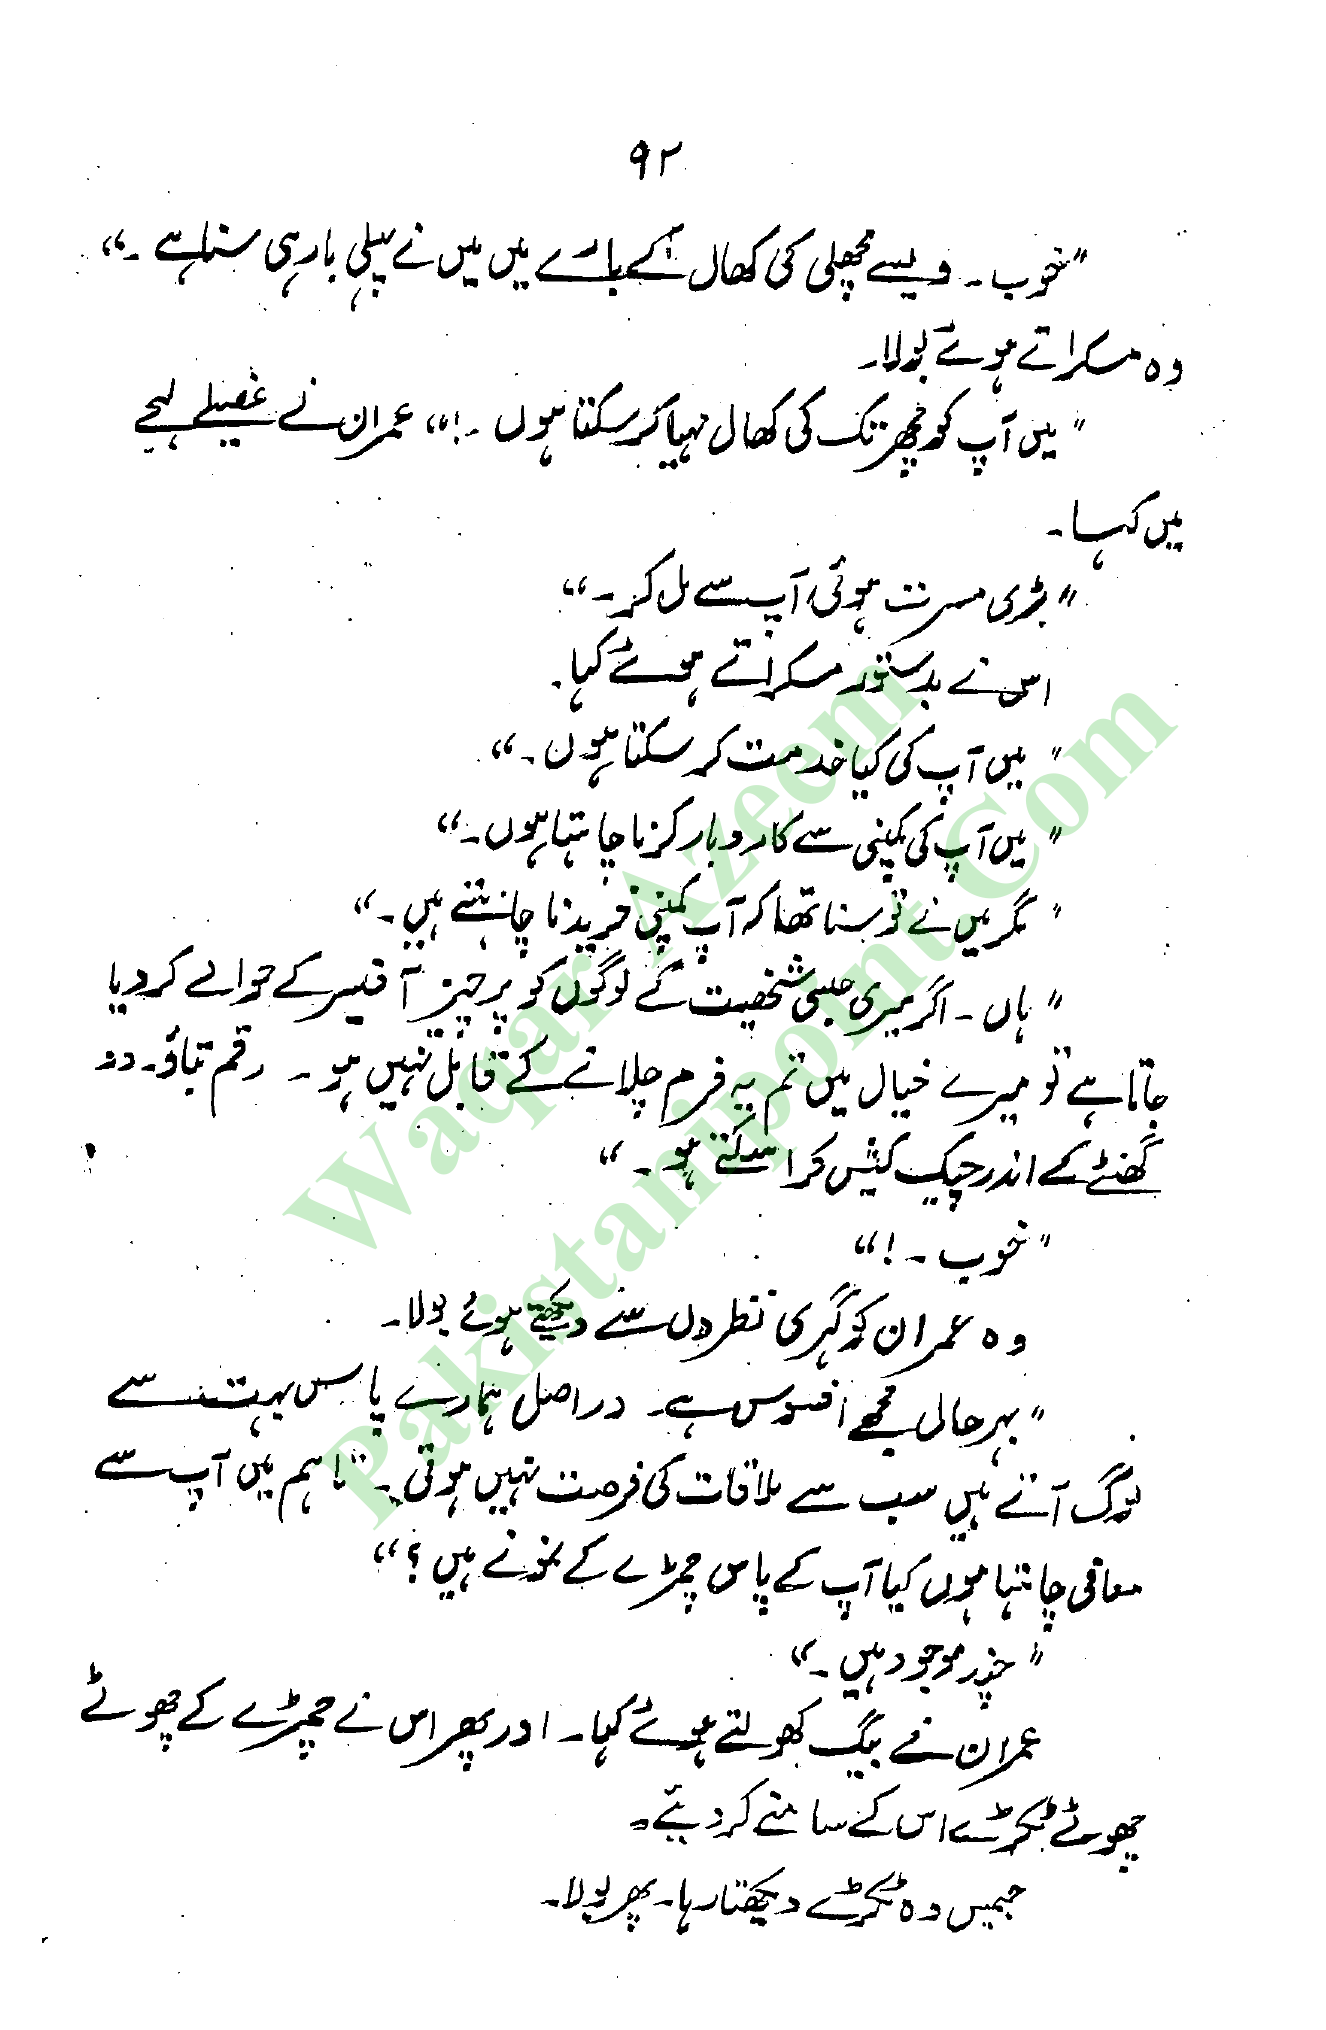 ۹۲
"خوب۔ ویسے مچھلی کی کھال کے بارے میں میں نے پہلی بار ہی سنا ہے۔"
وہ مسکراتے ہوئے بولا۔
"میں آپ کو مچھر تک کی کھال مہیا کر سکتا ہوں۔!" عمران نے غصیلے لہجے
میں کہا۔
"بڑی مسرت ہوئی آپ سے مل کر۔"
اس نے بدستور مسکراتے ہوئے کہا۔
"میں آپ کی کیا خدمت کر سکتا ہوں۔"
"میں آپ کی کمپنی سے کاروبار کرنا چاہتا ہوں۔"
"مگر میں نے تو سنا تھا کہ آپ کمپنی خریدنا چاہتے ہیں۔"
"ہاں۔ اگر میری جیسی شخصیت کے لوگوں کو پرچیز آفیسر کے حوالے کر دیا
جاتا ہے تو میرے خیال میں تم یہ فرم چلانے کے قابل نہیں ہو۔ رقم بتاؤ۔ دو
گھنٹے کے اندر چیک کیش کرا سکتے ہو۔"
"خوب۔!"
وہ عمران کو گہری نظروں سے دیکھتے ہوئے بولا۔
"بہرحال مجھے افسوس ہے۔ دراصل ہمارے پاس بہت سے
لوگ آتے ہیں سب سے ملاقات کی فرصت نہیں ہوتی۔ تاہم میں آپ سے
معافی چاہتا ہوں کیا آپ کے پاس چمڑے کے نمونے ہیں؟"
"چند موجود ہیں۔"
عمران نے بیگ کھولتے ہوئے کہا۔ اور پھر اس نے چمڑے کے چھوٹے
چھوٹے ٹکڑے اس کے سامنے کر دیئے۔
جیمس وہ ٹکڑے دیکھتا رہا۔ پھر بولا۔
Waqar Azeem
Pakistanipoint.Com